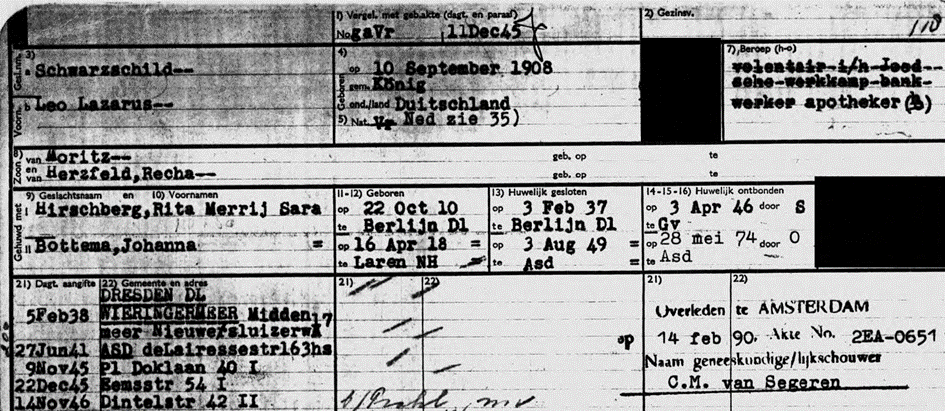 1) Vergel. met geb.akte (dagt. en paraaf)
No. gaVr 11Dec45
2) Gezinsv.
110
3)
Gesl.nm. a Schwarzschild--
Voorn. b Leo Lazarus--
4)
Geboren op 10 September 1908
gem. König
ond./land Duitschland
5) Nat. Vr Ned zie 35)
7) Beroep (h-o)
volentair i/h Jood--
sche werkkamp bank-
werker apotheker (b)
Zoon van Moritz-- geb. op te
en van Herzfeld,Recha-- geb. op te
9) Geslachtsnaam en 10) Voornamen
11-12) Geboren
13) Huwelijk gesloten
14-15-16) Huwelijk ontbonden
Gehuwd met
I Hirschberg,Rita Merrij Sara
op 22 Oct 10
te Berlijn Dl
op 3 Feb 37
te Berlijn Dl
op 3 Apr 46 door S
te Gv
II Bottema,Johanna =
op 16 Apr 18 =
te Laren NH
op 3 Aug 49 =
te Asd =
op 28 mei 74 door O
te Asd
21) Dagt. aangifte 22) Gemeente en adres
21) 22)
21) 22)
DRESDEN DL
5Feb38 WIERINGERMEER Midden
meer Nieuwersluizerw
27Jun41 ASD deLairessestr163hs
9Nov45 Pl Doklaan 40 I
22Dec45 Eemsstr 54 I
14Nov46 Dintelstr 42 II
Overleden te AMSTERDAM
op 14 feb 90. Akte No. 2EA-0651
Naam geneeskundige/lijkschouwer
C.M. van Segeren